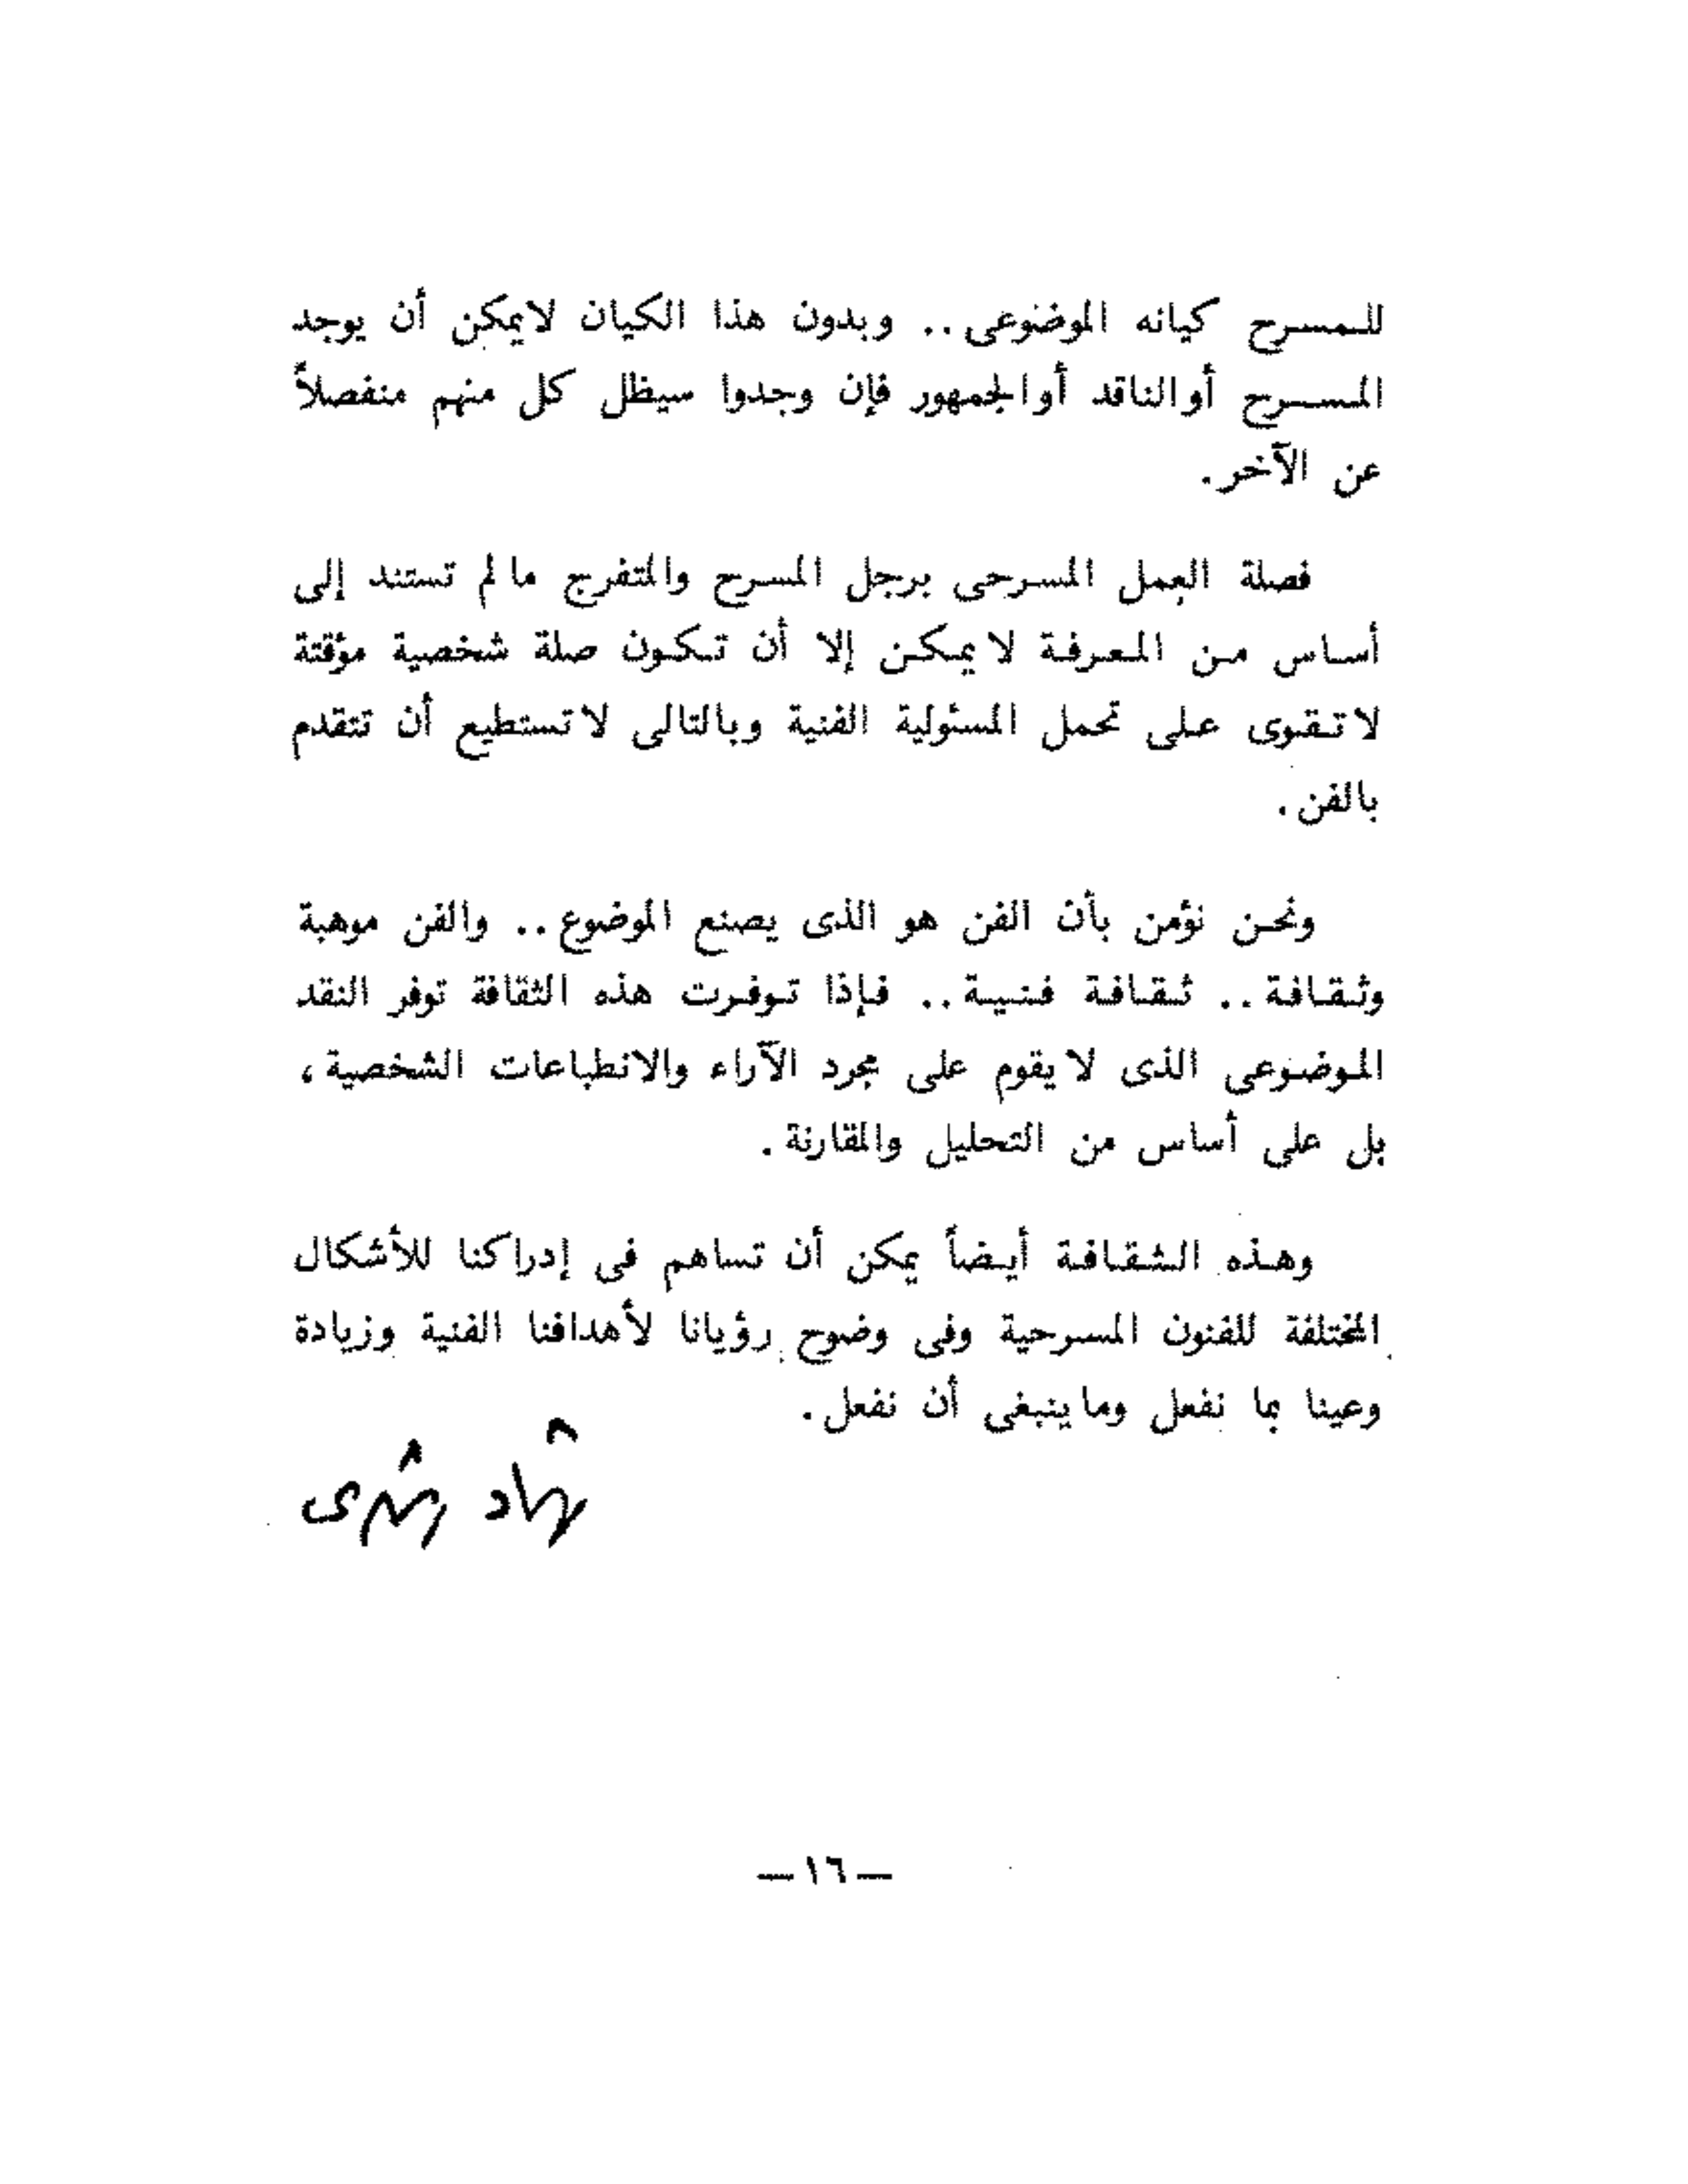 للمسرح كيانه الموضوعى .. وبدون هذا الكيان لايمكن أن يوجد
المسرح أو الناقد أو الجمهور فإن وجدوا سيظل كل منهم منفصلاً
عن الآخر .
فصلة العمل المسرحى برجل المسرح والمتفرج مالم تستند إلى
أساس من المعرفة لا يمكن إلا أن تكون صلة شخصية مؤقتة
لاتقوى على تحمل المسئولية الفنية وبالتالى لاتستطيع أن تتقدم
بالفن .
ونحن نؤمن بأن الفن هو الذى يصنع الموضوع .. والفن موهبة
وثقافة .. ثقافة فنية .. فإذا توفرت هذه الثقافة توفر النقد
الموضوعى الذى لايقوم على مجرد الآراء والانطباعات الشخصية ،
بل على أساس من التحليل والمقارنة .
وهذه الثقافة أيضاً يمكن أن تساهم فى إدراكنا للأشكال
المختلفة للفنون المسرحية وفى وضوح رؤيانا لأهدافنا الفنية وزيادة
وعينا بما نفعل وماينبغى أن نفعل .
رشاد رشدى
— ١٦ —